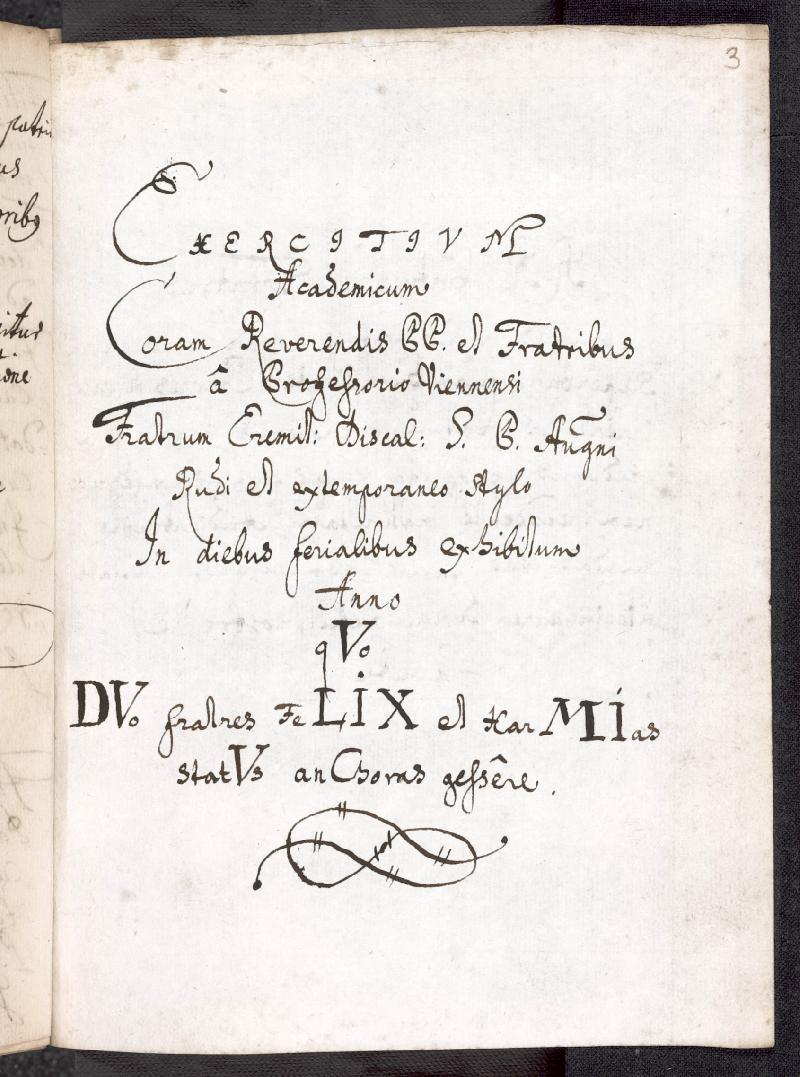 3
EXERCITIVM
Academicum
Coram Reverendis PP. et Fratribus
â Professorio Viennensi
Fratrum Eremit: Discal: S. P. Augni
Rudi et extemporaneo stylo
In diebus ferialibus exhibitum
Anno
qVo
DVo fratres FeLIX et HarMIas
statVs anChoras gessêre.
patri
us
oribg
itur
tione